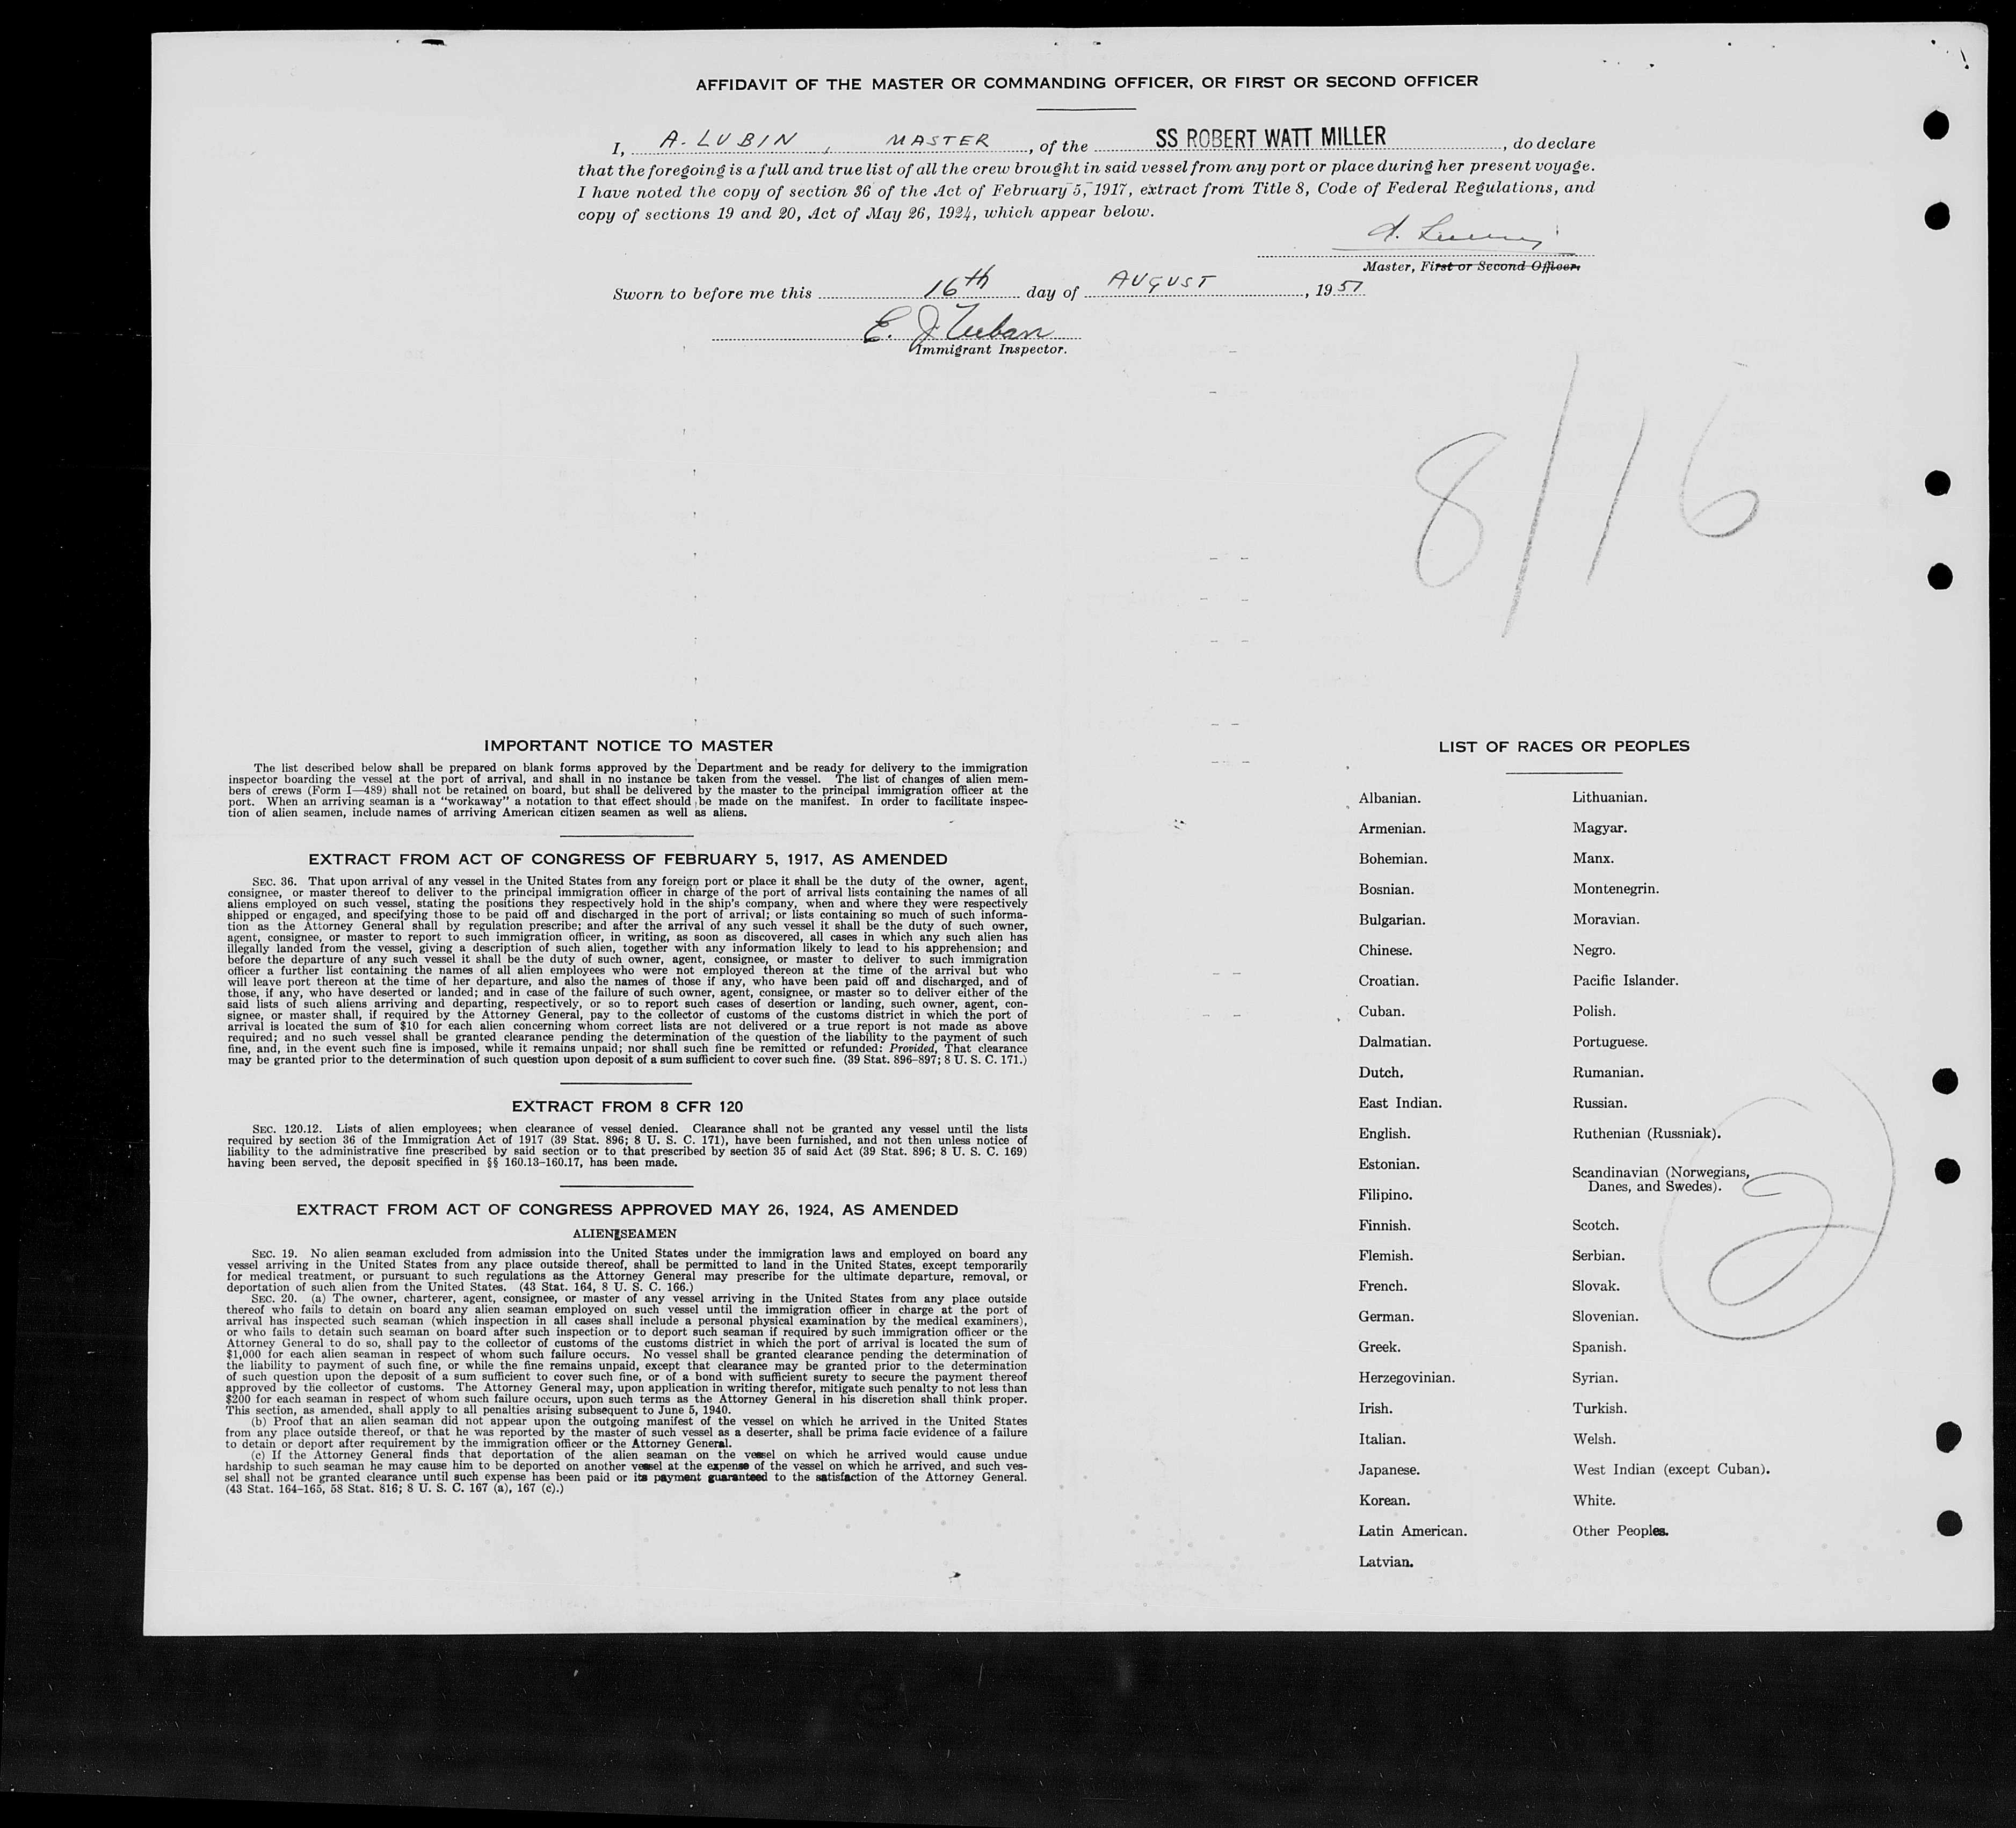 AFFIDAVIT OF THE MASTER OR COMMANDING OFFICER, OR FIRST OR SECOND OFFICER
I, A. LUBIN, MASTER, of the SS ROBERT WATT MILLER, do declare
that the foregoing is a full and true list of all the crew brought in said vessel from any port or place during her present voyage.
I have noted the copy of section 36 of the Act of February 5, 1917, extract from Title 8, Code of Federal Regulations, and
copy of sections 19 and 20, Act of May 26, 1924, which appear below.
Master, First or Second Officer.
Sworn to before me this 16th day of AUGUST, 1951
E. J.
Immigrant Inspector.
8/16
IMPORTANT NOTICE TO MASTER
The list described below shall be prepared on blank forms approved by the Department and be ready for delivery to the immigration
inspector boarding the vessel at the port of arrival, and shall in no instance be taken from the vessel. The list of changes of alien mem-
bers of crews (Form I—489) shall not be retained on board, but shall be delivered by the master to the principal immigration officer at the
port. When an arriving seaman is a "workaway" a notation to that effect should be made on the manifest. In order to facilitate inspec-
tion of alien seamen, include names of arriving American citizen seamen as well as aliens.
EXTRACT FROM ACT OF CONGRESS OF FEBRUARY 5, 1917, AS AMENDED
SEC. 36. That upon arrival of any vessel in the United States from any foreign port or place it shall be the duty of the owner, agent,
consignee, or master thereof to deliver to the principal immigration officer in charge of the port of arrival lists containing the names of all
aliens employed on such vessel, stating the positions they respectively hold in the ship's company, when and where they were respectively
shipped or engaged, and specifying those to be paid off and discharged in the port of arrival; or lists containing so much of such informa-
tion as the Attorney General shall by regulation prescribe; and after the arrival of any such vessel it shall be the duty of such owner,
agent, consignee, or master to report to such immigration officer, in writing, as soon as discovered, all cases in which any such alien has
illegally landed from the vessel, giving a description of such alien, together with any information likely to lead to his apprehension; and
before the departure of any such vessel it shall be the duty of such owner, agent, consignee, or master to deliver to such immigration
officer a further list containing the names of all alien employees who were not employed thereon at the time of the arrival but who
will leave port thereon at the time of her departure, and also the names of those if any, who have been paid off and discharged, and of
those, if any, who have deserted or landed; and in case of the failure of such owner, agent, consignee, or master so to deliver either of the
said lists of such aliens arriving and departing, respectively, or so to report such cases of desertion or landing, such owner, agent, con-
signee, or master shall, if required by the Attorney General, pay to the collector of customs of the customs district in which the port of
arrival is located the sum of $10 for each alien concerning whom correct lists are not delivered or a true report is not made as above
required; and no such vessel shall be granted clearance pending the determination of the question of the liability to the payment of such
fine, and, in the event such fine is imposed, while it remains unpaid; nor shall such fine be remitted or refunded: Provided, That clearance
may be granted prior to the determination of such question upon deposit of a sum sufficient to cover such fine. (39 Stat. 896–897; 8 U. S. C. 171.)
EXTRACT FROM 8 CFR 120
SEC. 120.12. Lists of alien employees; when clearance of vessel denied. Clearance shall not be granted any vessel until the lists
required by section 36 of the Immigration Act of 1917 (39 Stat. 896; 8 U. S. C. 171), have been furnished, and not then unless notice of
liability to the administrative fine prescribed by said section or to that prescribed by section 35 of said Act (39 Stat. 896; 8 U. S. C. 169)
having been served, the deposit specified in §§ 160.13–160.17, has been made.
EXTRACT FROM ACT OF CONGRESS APPROVED MAY 26, 1924, AS AMENDED
ALIEN SEAMEN
SEC. 19. No alien seaman excluded from admission into the United States under the immigration laws and employed on board any
vessel arriving in the United States from any place outside thereof, shall be permitted to land in the United States, except temporarily
for medical treatment, or pursuant to such regulations as the Attorney General may prescribe for the ultimate departure, removal, or
deportation of such alien from the United States. (43 Stat. 164, 8 U. S. C. 166.)
SEC. 20. (a) The owner, charterer, agent, consignee, or master of any vessel arriving in the United States from any place outside
thereof who fails to detain on board any alien seaman employed on such vessel until the immigration officer in charge at the port of
arrival has inspected such seaman (which inspection in all cases shall include a personal physical examination by the medical examiners),
or who fails to detain such seaman on board after such inspection or to deport such seaman if required by such immigration officer or the
Attorney General to do so, shall pay to the collector of customs of the customs district in which the port of arrival is located the sum of
$1,000 for each alien seaman in respect of whom such failure occurs. No vessel shall be granted clearance pending the determination of
the liability to payment of such fine, or while the fine remains unpaid, except that clearance may be granted prior to the determination
of such question upon the deposit of a sum sufficient to cover such fine, or of a bond with sufficient surety to secure the payment thereof
approved by the collector of customs. The Attorney General may, upon application in writing therefor, mitigate such penalty to not less than
$200 for each seaman in respect of whom such failure occurs, upon such terms as the Attorney General in his discretion shall think proper.
This section, as amended, shall apply to all penalties arising subsequent to June 5, 1940.
(b) Proof that an alien seaman did not appear upon the outgoing manifest of the vessel on which he arrived in the United States
from any place outside thereof, or that he was reported by the master of such vessel as a deserter, shall be prima facie evidence of a failure
to detain or deport after requirement by the immigration officer or the Attorney General.
(c) If the Attorney General finds that deportation of the alien seaman on the vessel on which he arrived would cause undue
hardship to such seaman he may cause him to be deported on another vessel at the expense of the vessel on which he arrived, and such ves-
sel shall not be granted clearance until such expense has been paid or its payment guaranteed to the satisfaction of the Attorney General.
(43 Stat. 164–165, 58 Stat. 816; 8 U. S. C. 167 (a), 167 (c).)
LIST OF RACES OR PEOPLES
Albanian.
Armenian.
Bohemian.
Bosnian.
Bulgarian.
Chinese.
Croatian.
Cuban.
Dalmatian.
Dutch.
East Indian.
English.
Estonian.
Filipino.
Finnish.
Flemish.
French.
German.
Greek.
Herzegovinian.
Irish.
Italian.
Japanese.
Korean.
Latin American.
Latvian.
Lithuanian.
Magyar.
Manx.
Montenegrin.
Moravian.
Negro.
Pacific Islander.
Polish.
Portuguese.
Rumanian.
Russian.
Ruthenian (Russniak).
Scandinavian (Norwegians,
Danes, and Swedes).
Scotch.
Serbian.
Slovak.
Slovenian.
Spanish.
Syrian.
Turkish.
Welsh.
West Indian (except Cuban).
White.
Other Peoples.
2